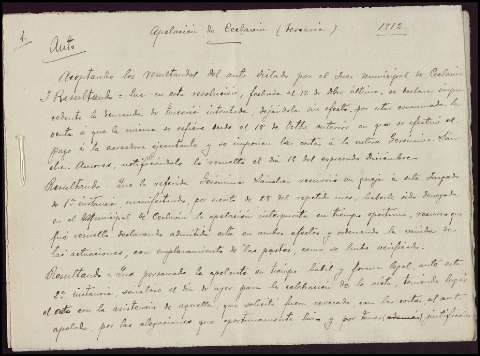 1.
Apelación de Ceclavín (Tercería) 1912
Auto
Aceptando los resultandos del auto dictado por el Juez municipal de Ceclavín
1 Resultando = Que en esta resolución, fechada el 12 de último, se declara impro
cedente la demanda de Tercería intentada, dejándola sin efecto, por estar consumada la
venta á que la misma se refiere desde el 18 de Octbre anterior en que se efectuó el
pago á la acreedora ejecutante y se imponen las costas á la actora Gerónima Sán
chez Amores, notificándole la resuelta el día 16 del expresado Diciembre.
Resultando = Que la referida Gerónima Sánchez recurrió en queja á este Juzgado
de 1ª instancia, manifestando, por escrito de 28 del repetido mes, haberle sido denegada
en el Municipal de Ceclavín la apelación interpuesta en tiempo oportuno, recurso que
fué resuelto declarando admitida esta en ambos efectos y ordenando la remisión de
las actuaciones, con emplazamiento de las partes, como se hubo verificado.
Resultando = Que personada la apelante en tiempo hábil y forma legal ante esta
2ª instancia, señalóse el día de ayer para la celebración de la vista, teniendo lugar
el acto con la asistencia de aquella que solicitó fuese revocado, con las costas, el auto
apelado, por las alegaciones que oportunamente hizo y por tener (además) justificado